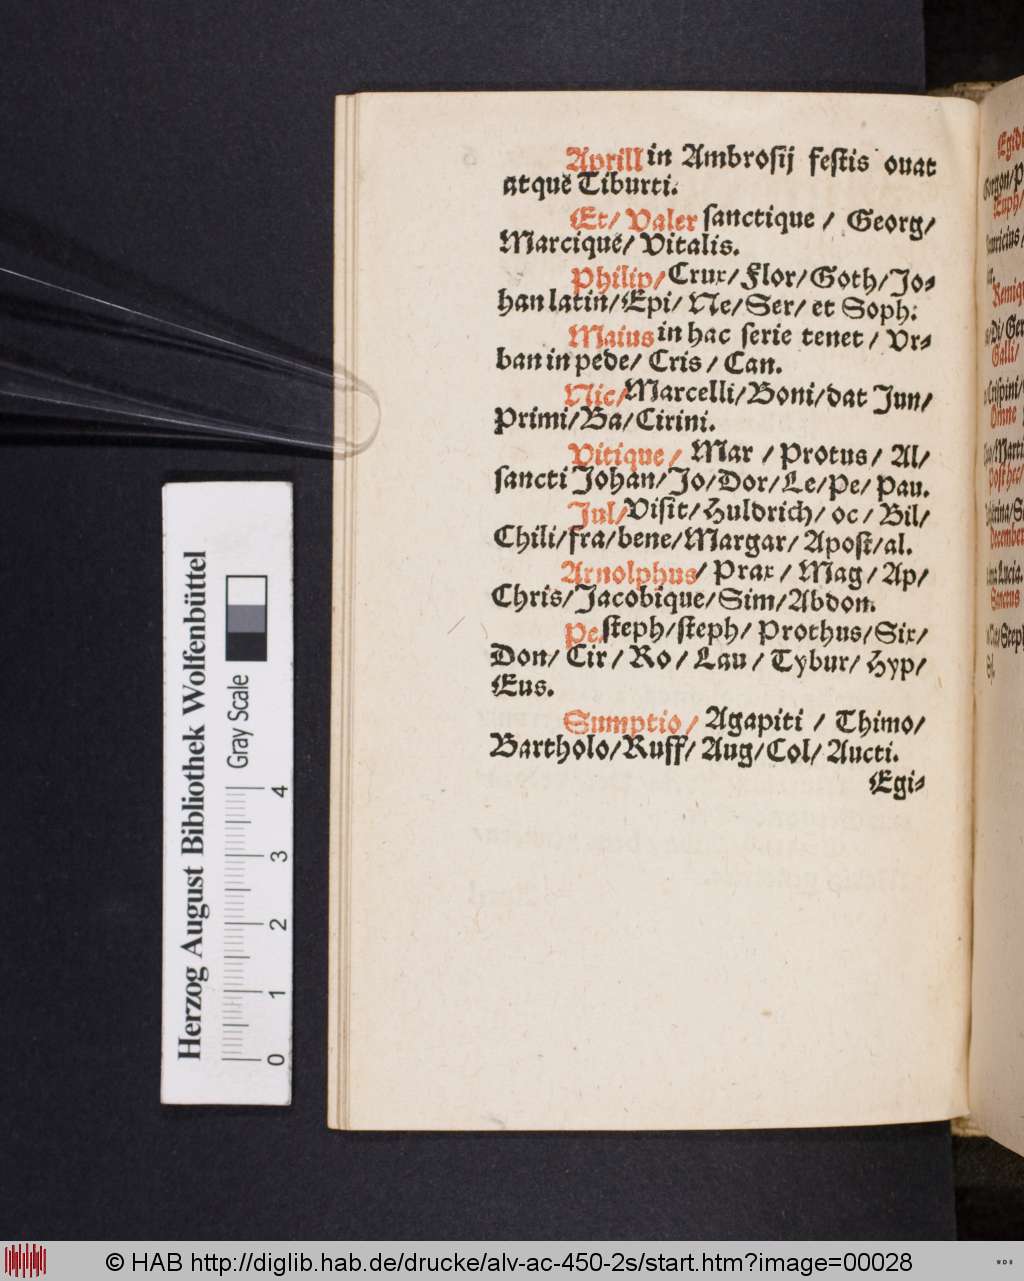 Aprill in Ambrosij festis ouat
atque Tiburti.
Et/ Valer sanctique / Georg/
Marcique/ Vitalis.
Philip/ Crux/ Flor/ Goth/ Jo-
han latin/ Epi/ Ne/ Ser/ et Soph.
Maius in hac serie tenet / Vr-
ban in pede/ Cris / Can.
Nic/ Marcelli/ Boni/ dat Jun/
Primi/ Ba/ Cirini.
Vitique/ Mar / Protus/ Al/
sancti Johan/ Jo/ Dor/ Le/ Pe/ Pau.
Jul/ Visit/ Huldrich/ oc / Bil/
Chili/ fra/ bene/ Margar/ Apost/ al.
Arnolphus/ Prax / Mag / Ap/
Chris/ Jacobique/ Sim/ Abdon.
Pe. steph/ steph/ Prothus/ Six/
Don/ Cir / Ro / Lau / Tybur/ Hyp/
Eus.
Sumptio/ Agapiti / Thimo/
Bartholo/ Ruff/ Aug/ Col/ Aucti.
Egi-
Herzog August Bibliothek Wolfenbüttel
Gray Scale
0 1 2 3 4
© HAB http://diglib.hab.de/drucke/alv-ac-450-2s/start.htm?image=00028